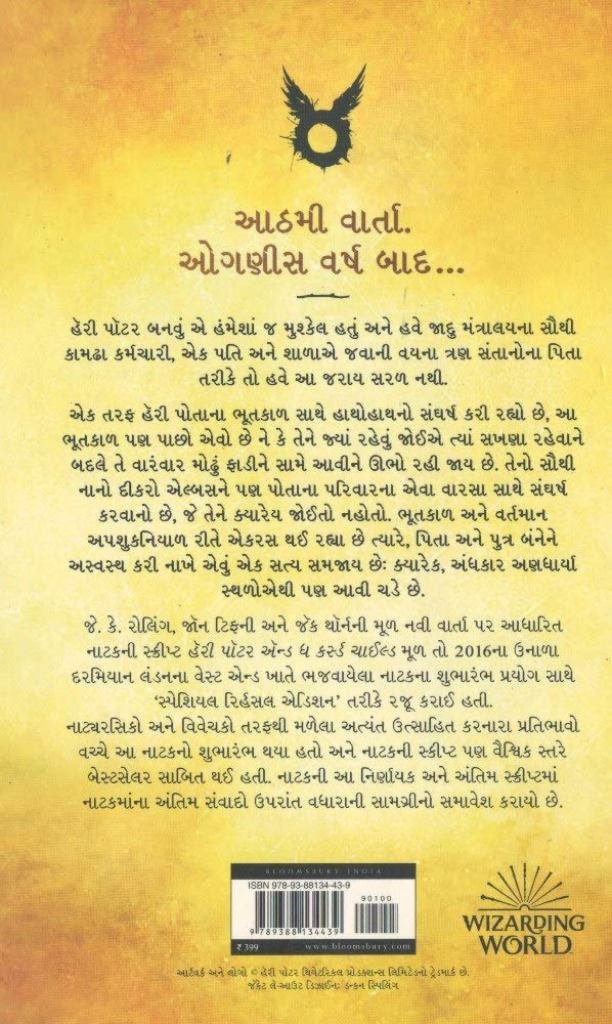 આઠમી વાર્તા.
ઓગણીસ વર્ષ બાદ...
હૅરી પૉટર બનવું એ હંમેશાં જ મુશ્કેલ હતું અને હવે જાદુ મંત્રાલયના સૌથી
કામઢા કર્મચારી, એક પતિ અને શાળાએ જવાની વયના ત્રણ સંતાનોના પિતા
તરીકે તો હવે આ જરાય સરળ નથી.
એક તરફ હૅરી પોતાના ભૂતકાળ સાથે હાથોહાથનો સંઘર્ષ કરી રહ્યો છે, આ
ભૂતકાળ પણ પાછો એવો છે ને કે તેને જ્યાં રહેવું જોઈએ ત્યાં સખણા રહેવાને
બદલે તે વારંવાર મોઢું ફાડીને સામે આવીને ઊભો રહી જાય છે. તેનો સૌથી
નાનો દીકરો એલ્બસને પણ પોતાના પરિવારના એવા વારસા સાથે સંઘર્ષ
કરવાનો છે, જે તેને ક્યારેય જોઈતો નહોતો. ભૂતકાળ અને વર્તમાન
અપશુકનિયાળ રીતે એકરસ થઈ રહ્યા છે ત્યારે, પિતા અને પુત્ર બંનેને
અસ્વસ્થ કરી નાખે એવું એક સત્ય સમજાય છેઃ ક્યારેક, અંધકાર અણધાર્યા
સ્થળોએથી પણ આવી ચડે છે.
જે. કે. રોલિંગ, જૉન ટિફની અને જૅક થૉર્નની મૂળ નવી વાર્તા પર આધારિત
નાટકની સ્ક્રીપ્ટ હૅરી પૉટર ઍન્ડ ધ કર્સ્ડ ચાઈલ્ડ મૂળ તો 2016ના ઉનાળા
દરમિયાન લંડનના વેસ્ટ એન્ડ ખાતે ભજવાયેલા નાટકના શુભારંભ પ્રયોગ સાથે
‘સ્પેશિયલ રિર્હસલ એડિશન’ તરીકે રજૂ કરાઈ હતી.
નાટ્યરસિકો અને વિવેચકો તરફથી મળેલા અત્યંત ઉત્સાહિત કરનારા પ્રતિભાવો
વચ્ચે આ નાટકનો શુભારંભ થયા હતો અને નાટકની સ્કીપ્ટ પણ વૈશ્વિક સ્તરે
બેસ્ટસેલર સાબિત થઈ હતી. નાટકની આ નિર્ણાયક અને અંતિમ સ્ક્રીપ્ટમાં
નાટકમાંના અંતિમ સંવાદો ઉપરાંત વધારાની સામગ્રીનો સમાવેશ કરાયો છે.
BLOOMSBURY INDIA
ISBN 978-93-88134-43-9
90100
9 789388 134439
₹ 399
www.bloomsbury.com
WIZARDING
WORLD
આર્ટવર્ક અને લોગો © હૅરી પોટર થિયેટરિકલ પ્રોડક્શન્સ લિમિટેડનો ટ્રેડમાર્ક છે.
જૅકેટ લે-આઉટ ડિઝાઈનઃ ડન્કન સ્પિલિંગ